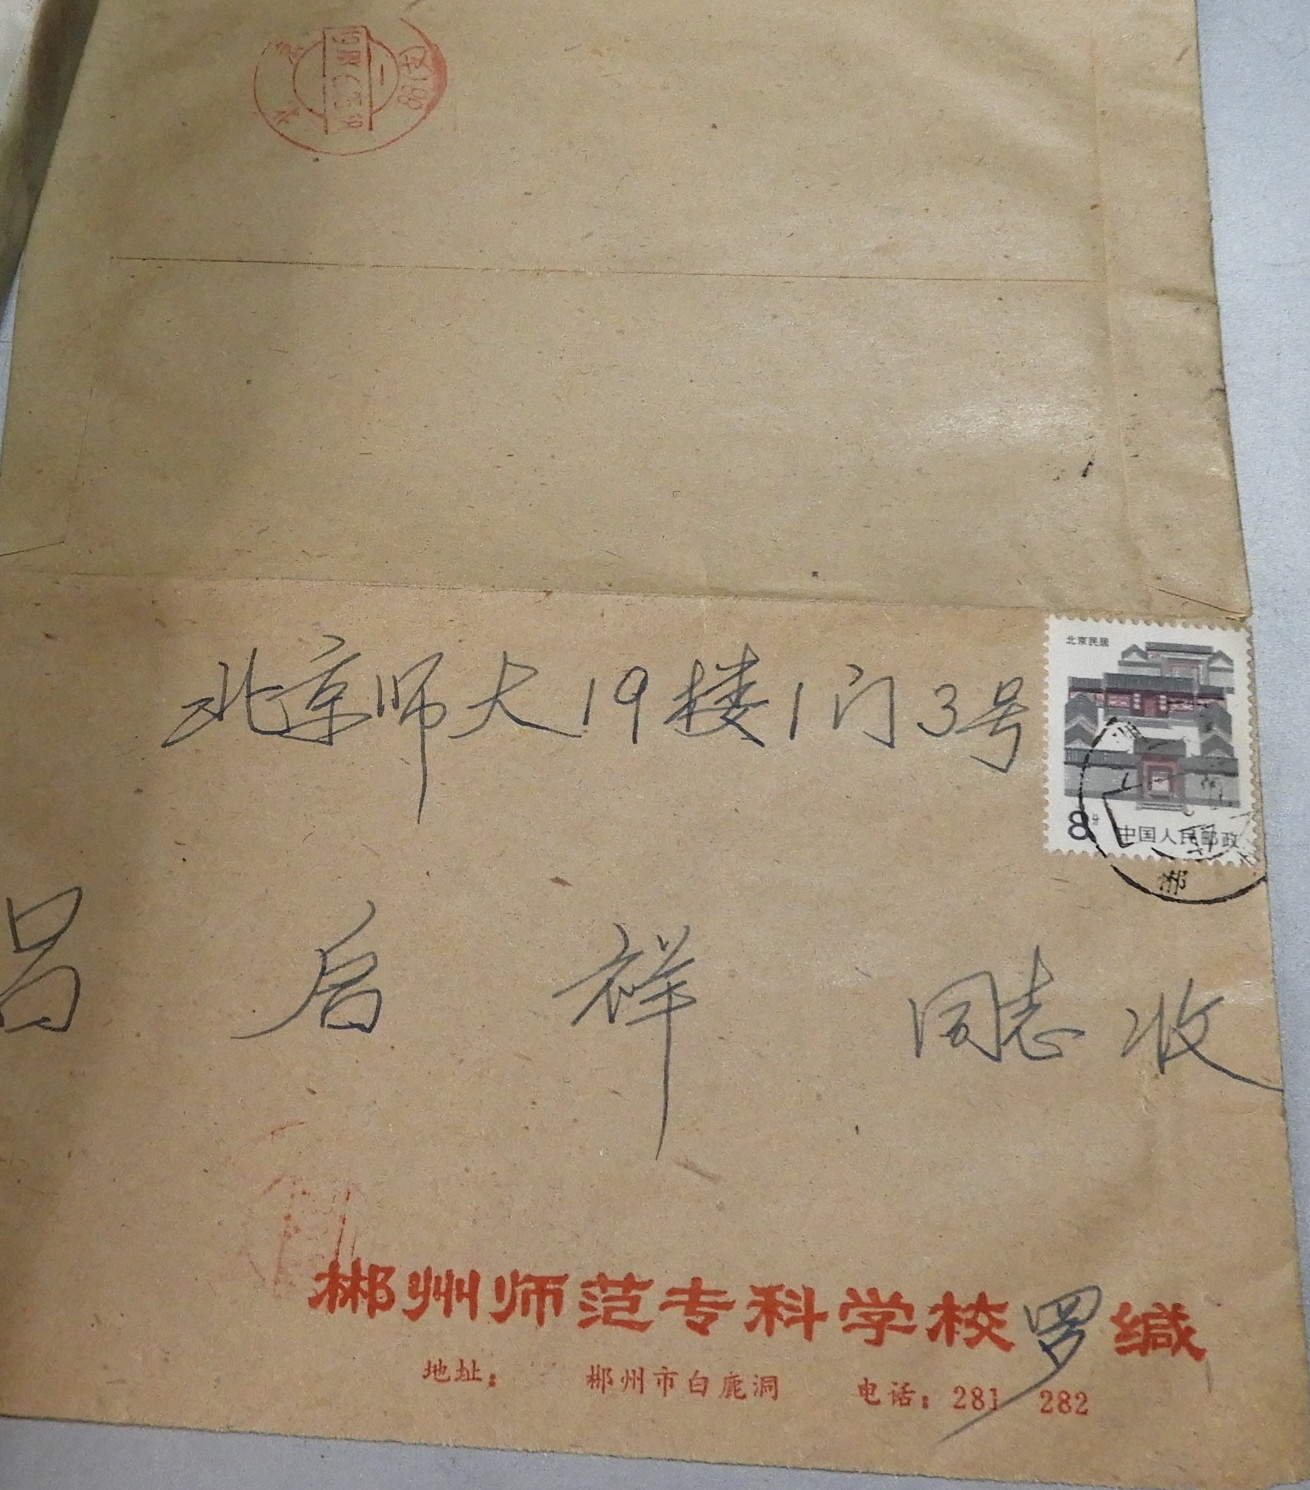 北京
北京民居
北京师大19楼1门3号
8分
中国人民邮政
郴
吕启祥 同志收
郴州师范专科学校罗缄
地址： 郴州市白鹿洞 电话：281 282